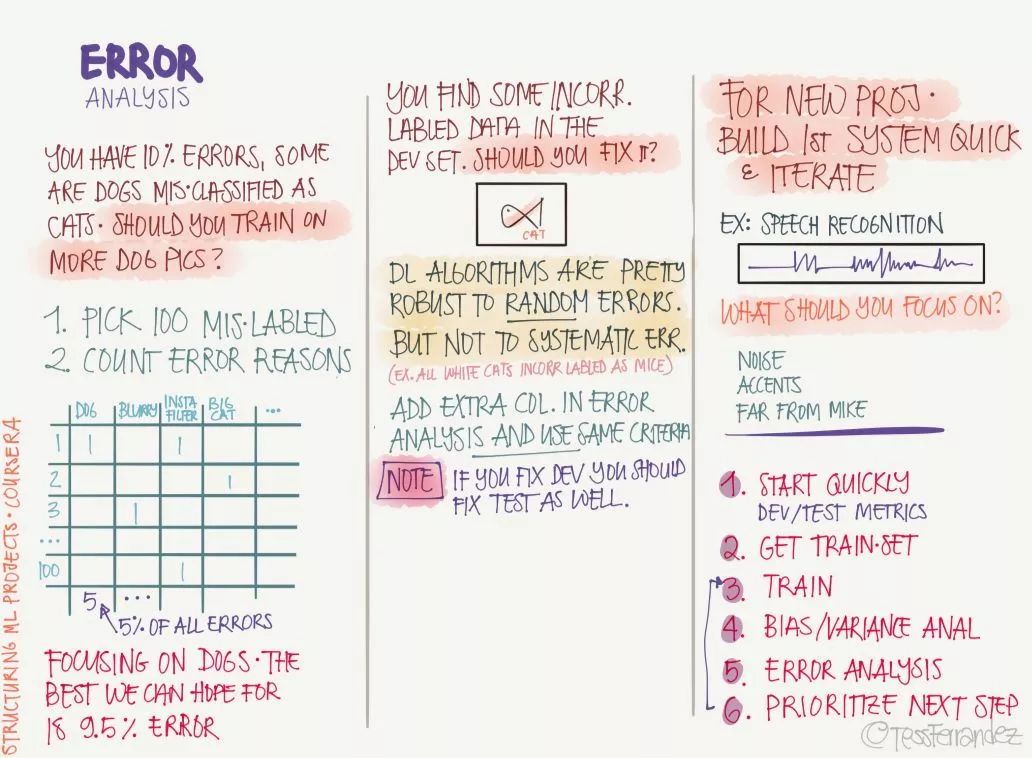 ERROR
ANALYSIS
YOU HAVE 10% ERRORS, SOME
ARE DOGS MIS·CLASSIFIED AS
CATS· SHOULD YOU TRAIN ON
MORE DOG PICS?
1. PICK 100 MIS·LABLED
2. COUNT ERROR REASONS
DOG BLURRY INSTA FILTER BIG CAT ...
1 1 1
2 1
3 1
...
100 1
5 ...
5% OF ALL ERRORS
FOCUSING ON DOGS· THE
BEST WE CAN HOPE FOR
IS 9.5% ERROR
STRUCTURING ML PROJECTS · COURSERA
YOU FIND SOME INCORR.
LABLED DATA IN THE
DEV SET. SHOULD YOU FIX IT?
CAT
DL ALGORITHMS ARE PRETTY
ROBUST TO RANDOM ERRORS.
BUT NOT TO SYSTEMATIC ERR.
(EX. ALL WHITE CATS INCORR LABLED AS MICE)
ADD EXTRA COL. IN ERROR
ANALYSIS AND USE SAME CRITERIA
NOTE IF YOU FIX DEV YOU SHOULD
FIX TEST AS WELL.
FOR NEW PROJ·
BUILD 1st SYSTEM QUICK
& ITERATE
EX: SPEECH RECOGNITION
WHAT SHOULD YOU FOCUS ON?
NOISE
ACCENTS
FAR FROM MIKE
1. START QUICKLY
DEV/TEST METRICS
2. GET TRAIN·SET
3. TRAIN
4. BIAS/VARIANCE ANAL
5. ERROR ANALYSIS
6. PRIORITIZE NEXT STEP
@TessFerrandez